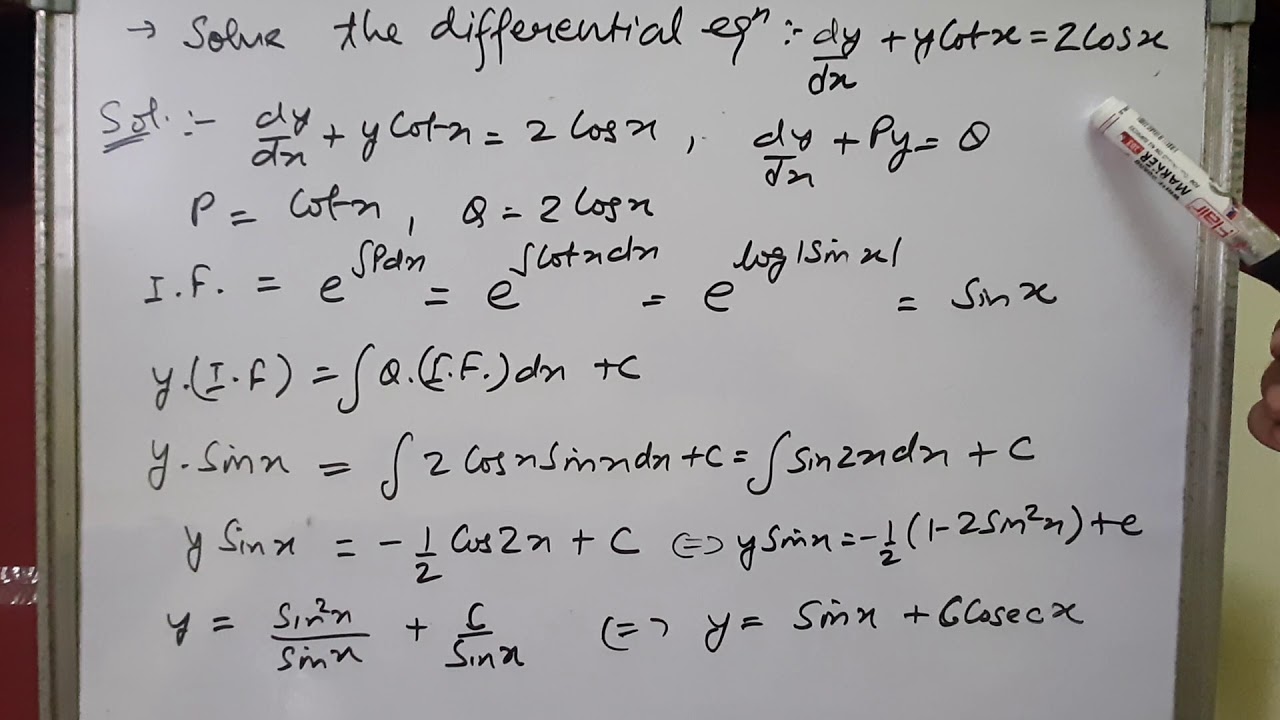 → Solve the differential eqⁿ :- dy/dx + y Cot x = 2 Cos x
Sol. :- dy/dx + y Cot x = 2 Cos x , dy/dx + Py = Q
P = Cot x , Q = 2 Cos x
I.F. = e^∫Pdx = e^∫Cot x dx = e^log|Sin x| = Sin x
y.(I.F) = ∫Q.(I.F.)dx + C
y. Sin x = ∫ 2 Cos x Sin x dx + C = ∫ Sin 2x dx + C
y Sin x = - 1/2 Cos 2x + C ⇔ y Sin x = - 1/2 (1 - 2 Sin²x) + c
y = Sin²x/Sin x + C/Sin x ⇔ y = Sin x + C Cosec x
MARKER
Flair